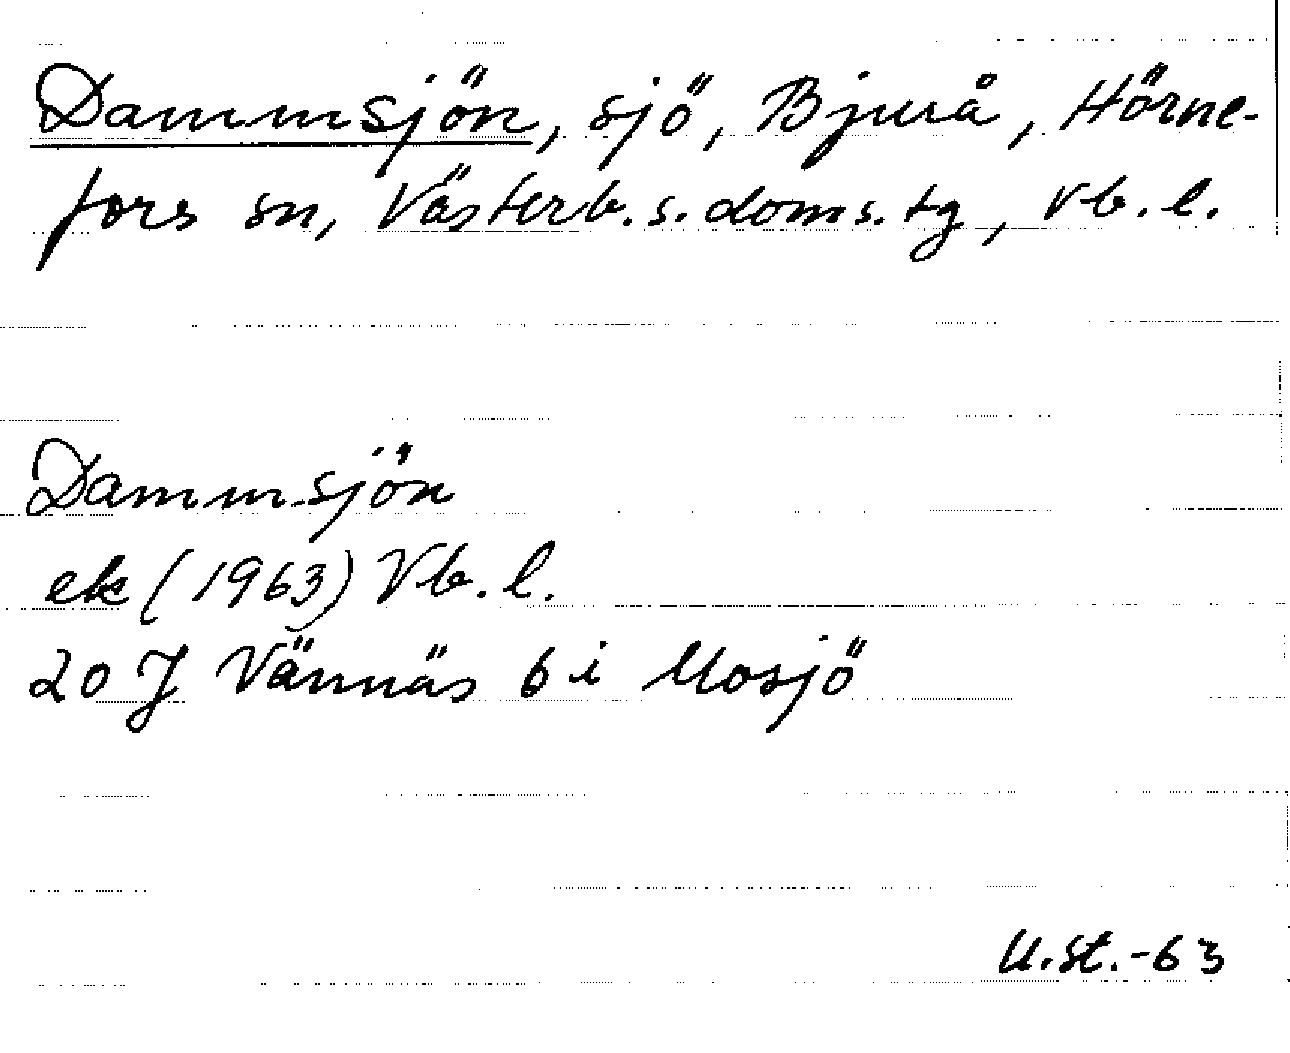 Dammsjön, sjö, Bjurå, Hörne-
fors sn, Västerb. s. doms. tg, Vb. l.
Dammsjön
ek (1963) Vb. l.
20 J Vännäs 6 i Mosjö
U. St. -63